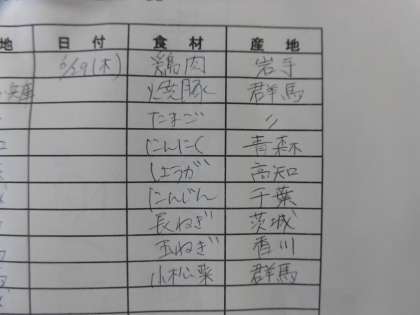 地 日付 食材 産地
6/29(木) 鶏肉 岩手
兵庫 焼豚 群馬
たまご 〃
にんにく 青森
しょうが 高知
にんじん 千葉
長ねぎ 茨城
玉ねぎ 香川
小松菜 群馬